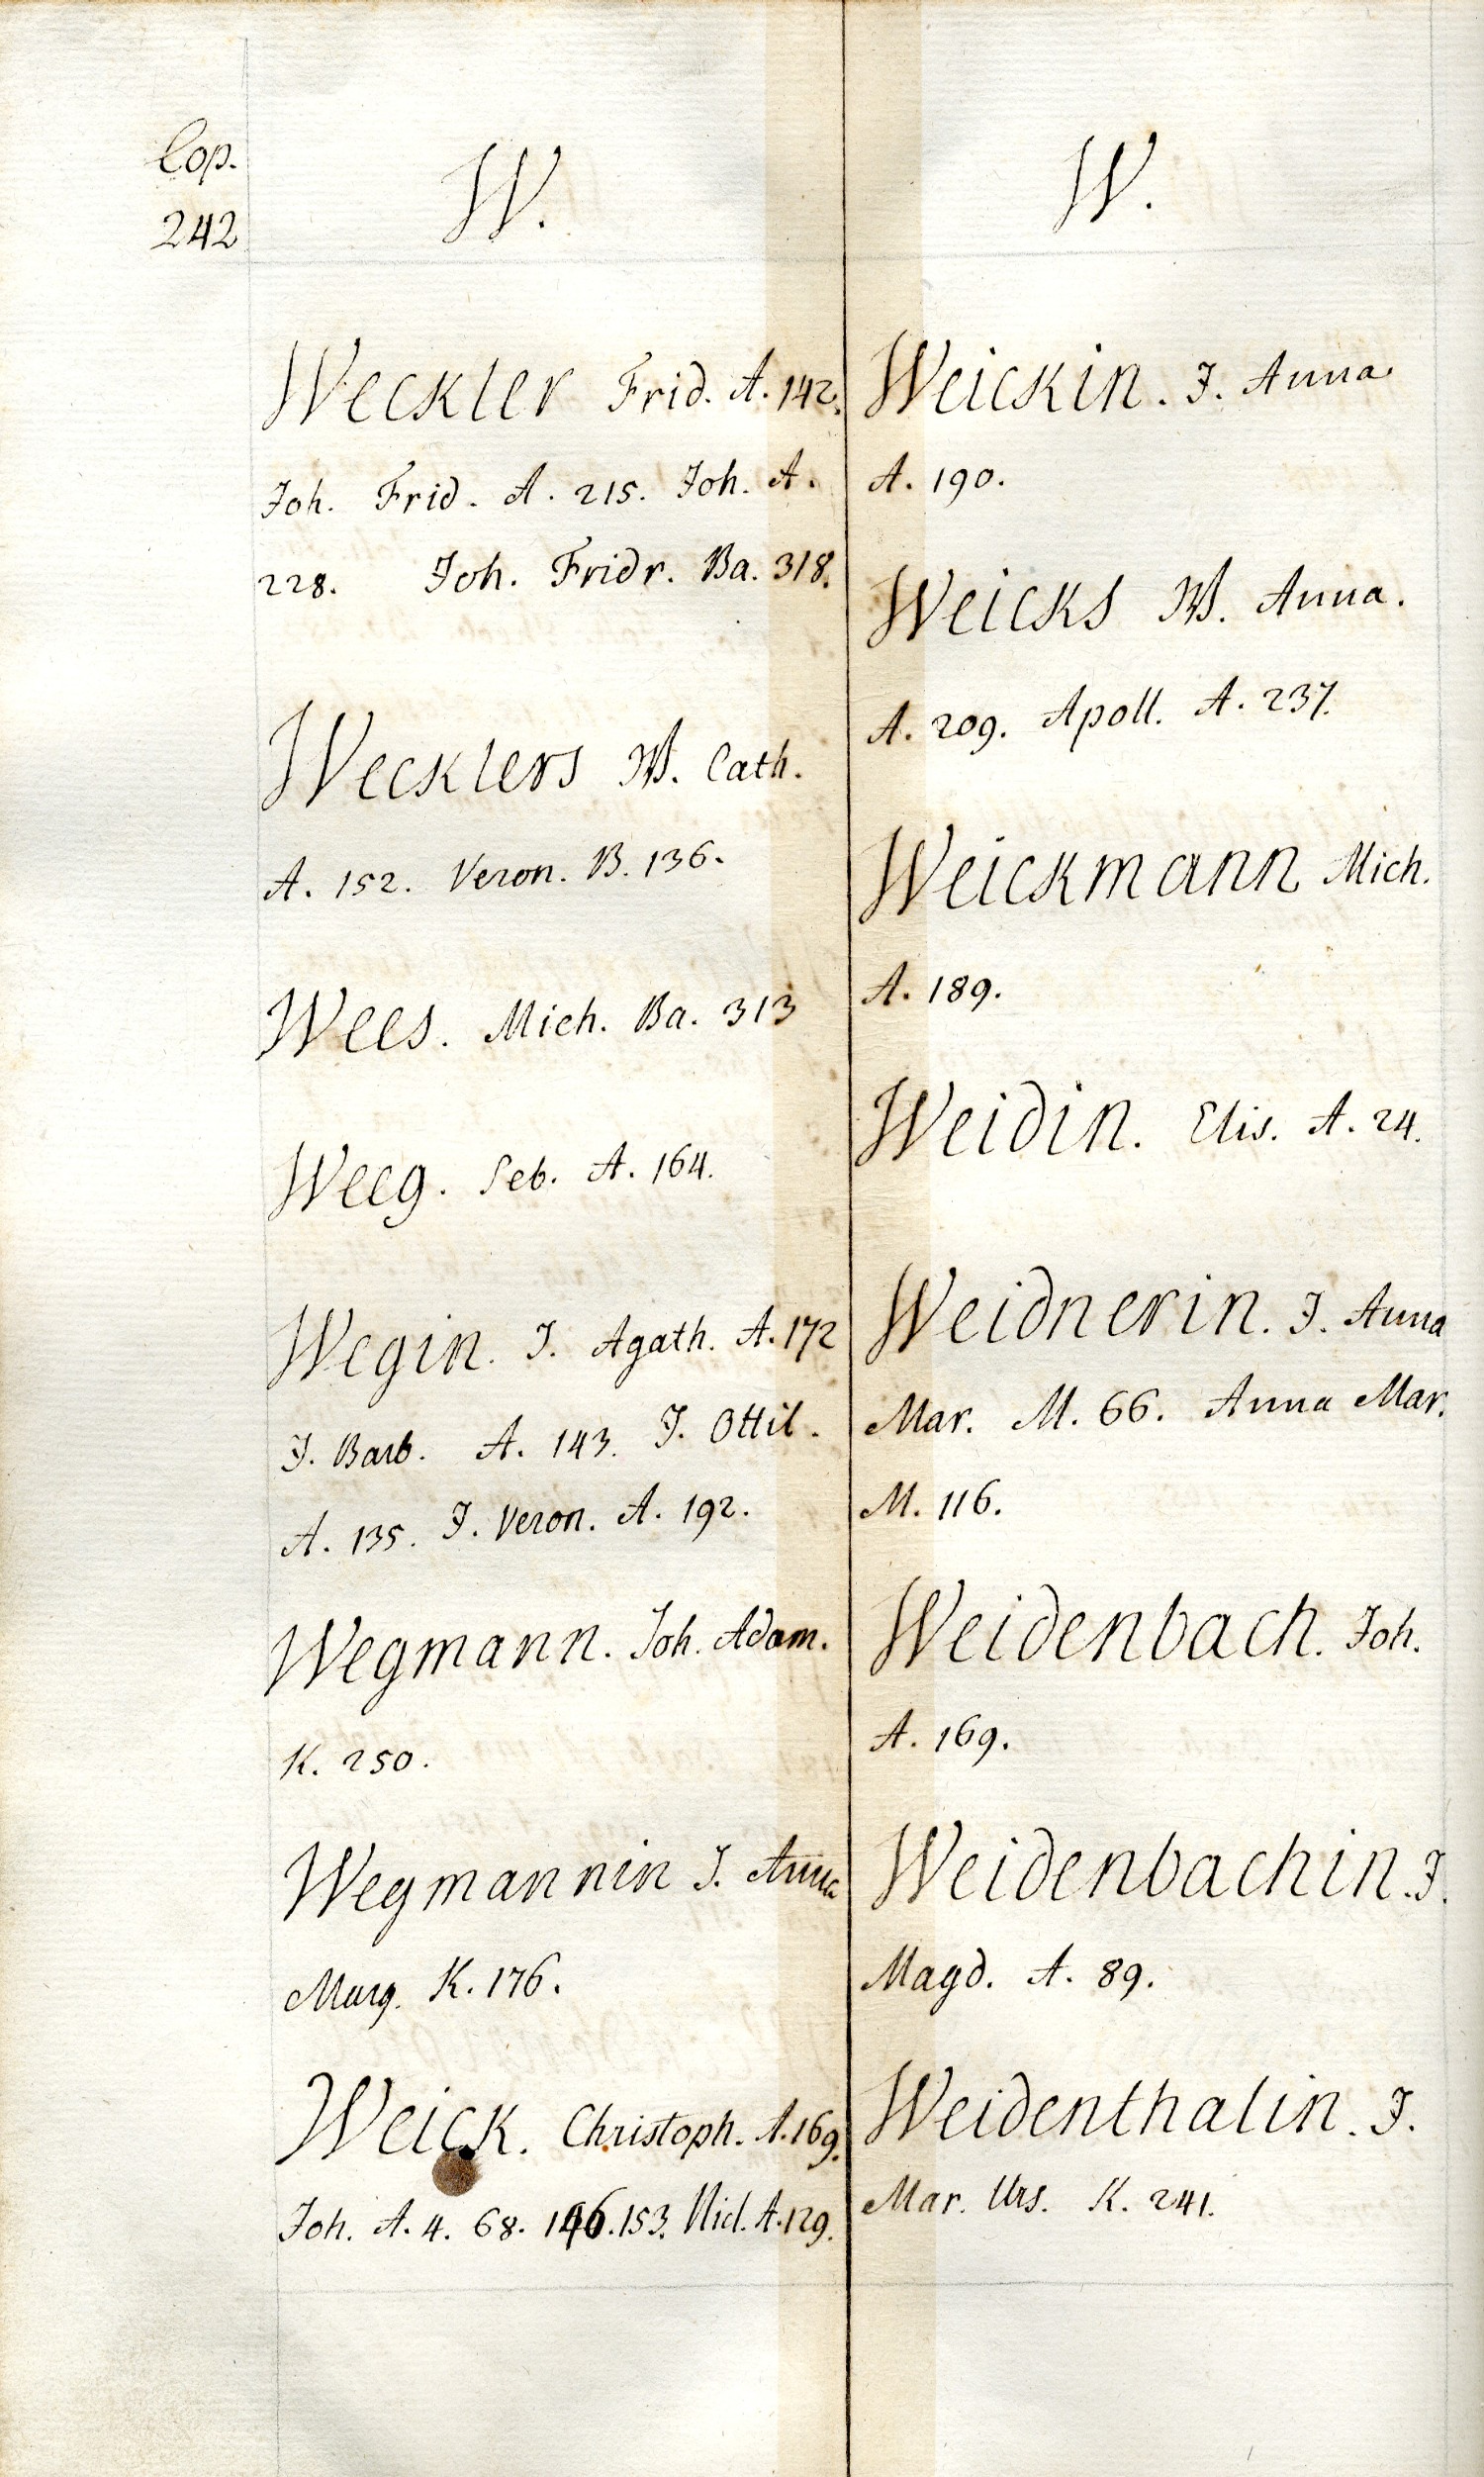 Cop.
242
W.
Weckler Frid. A. 142.
Joh. Frid. A. 215. Joh. A.
228. Joh. Fridr. Ba. 318.
Wecklers W. Cath.
A. 152. Veron. B. 136.
Wees. Mich. Ba. 313
Weeg. Seb. A. 164.
Wegin. J. Agath. A. 172
J. Barb. A. 143. J. Ottil.
A. 135. J. Veron. A. 192.
Wegmann. Joh. Adam.
K. 250.
Wegmannin J. Anna
Marg. K. 176.
Weick. Christoph. A. 169.
Joh. A. 4. 68. 153. Nicl. A. 129.
W.
Weickin. J. Anna
A. 190.
Weicks W. Anna.
A. 209. Apoll. A. 237.
Weickmann Mich.
A. 189.
Weidin. Elis. A. 24.
Weidnerin. J. Anna
Mar. M. 66. Anna Mar.
M. 116.
Weidenbach. Joh.
A. 169.
Weidenbachin. J.
Magd. A. 89.
Weidenthalin. J.
Mar. Urs. K. 241.